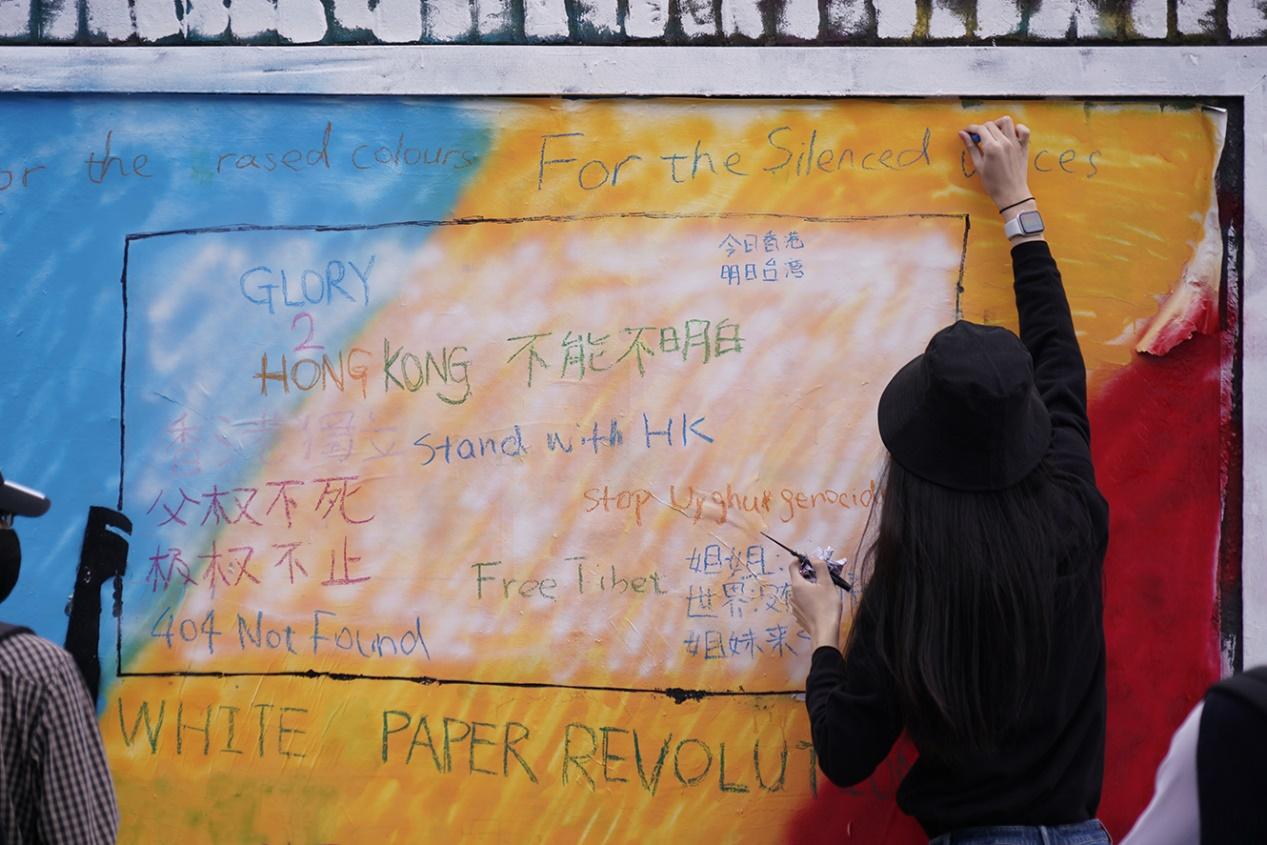 or the rased colours For the Silenced
今日香港
明日台湾
GLORY
2
HONG KONG 不能不明白
香港獨立 Stand with HK
Stop Uyghur genocid
父权不死
极权不止
Free Tibet
姐姐:
世界
404 Not Found
姐妹来
WHITE PAPER REVOLUT